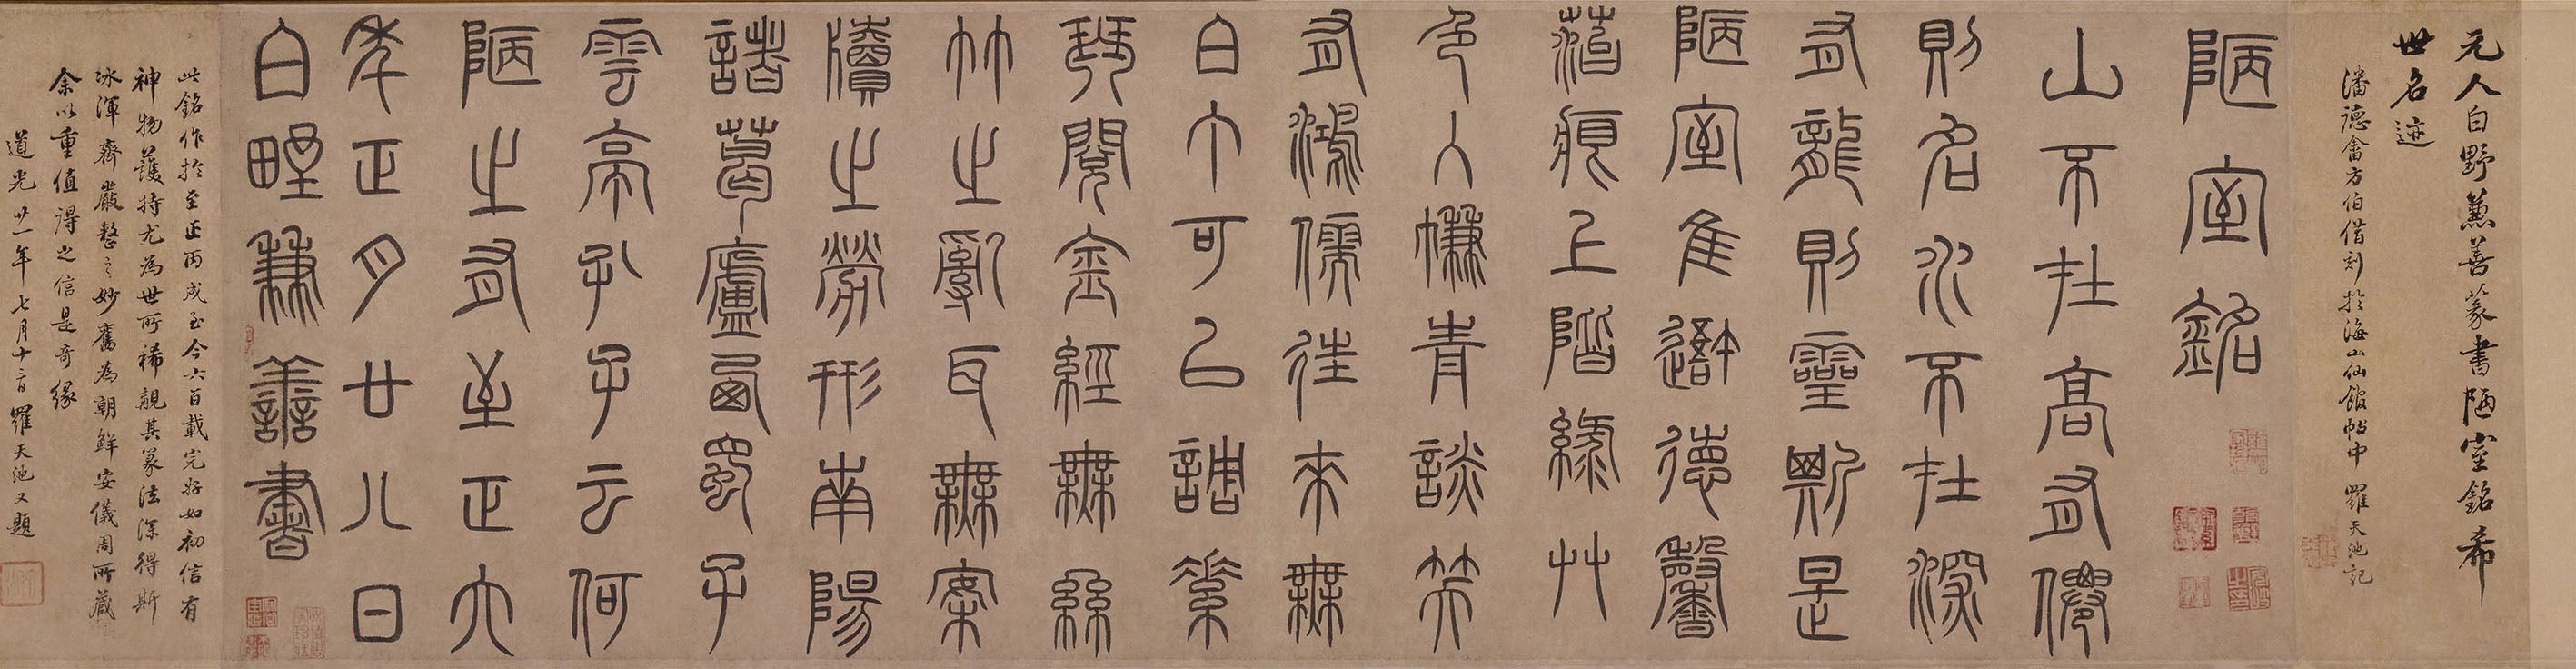 元人白野兼善篆書陋室銘希
世名迹
潘德畬方伯借刻於海山仙館帖中 羅天池記
陋室銘
山不在高有僊
則名水不在深
有龍則靈斯是
陋室隹吾德馨
菭痕上階綠艸
色入㡘青談笑
有鴻儒往來無
白丁可㠯調素
琴閱金經無絲
竹之亂耳無案
牘之勞形南陽
諸葛廬西蜀子
雲亭孔子云何
陋之有至正六
年正月廿八日
白野兼善書
此銘作於至正丙戌至今六百載完好如初信有
神物護持尤為世所稀覯其篆法深得斯
冰渾齊嚴整之妙舊為朝鮮安儀周所藏
余以重值得之信是奇緣
道光廿一年七月十二日羅天池又題